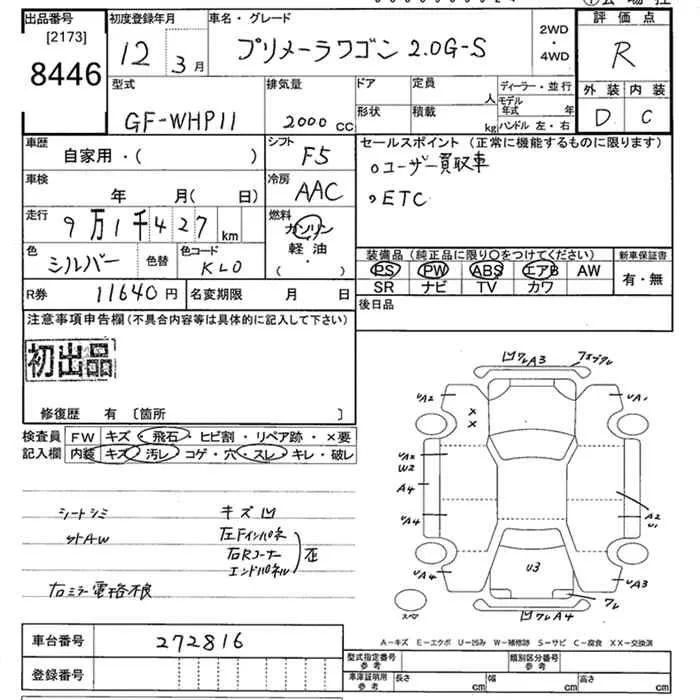 出品番号
[2173]
8446
初度登録年月
12 3月
車名・グレード
プリメーラワゴン 2.0G-S
2WD
・
4WD
評価点
R
外装 内装
D C
型式
GF-WHP11
排気量
2000 cc
ドア
形状
定員
人
積載
kg
ディーラー・並行
モデル
年式 年
ハンドル 左・右
車歴
自家用・( )
シフト
F5
セールスポイント (正常に機能するものに限ります)
○ユーザー買取車
○ETC
車検
年 月( 日)
冷房
AAC
走行
9万1千427 km
燃料
ガソリン
軽油
( ・ )
色
シルバー
色替
色コード
KL0
装備品 (純正品に限り○をつけてください)
PS PW ABS エアB AW
SR ナビ TV カワ
新車保証書
有・無
R券
11640 円
名変期限 月 日
後日品
注意事項申告欄 (不具合内容等は具体的に記入して下さい)
初出品
修復歴 有 〔箇所 〕
検査員
記入欄
FW キズ・飛石・ヒビ割・リペア跡・×要
内装 キズ・汚レ・コゲ・穴・スレ・キレ・破レ
シートシミ
社外AW
右ミラー電格不良
キズ凹
左Fインパネ
右Rコーナー
エンドパネル
歪
凹ワレA3
UA2
UA1
W2
A4
UA4
A2
U1
UA4
U3
UA3
ワレ
凹ワレA4
スペア
A－キズ E－エクボ U－凹み W－補修跡 S－サビ C－腐食 XX－交換済
車台番号
272816
登録番号
型式指定番号
参考
類別区分番号
参考
車庫証明用
参考
長さ cm
幅 cm
高さ cm